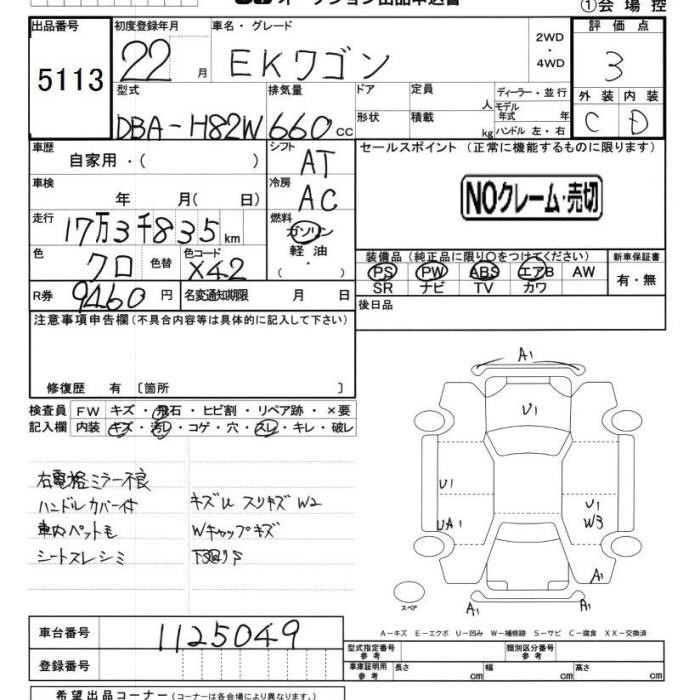 オークション出品申込書
①会場控
出品番号 初度登録年月 車名・グレード 評価点
5113 22 月 EKワゴン 2WD・4WD 3
型式 排気量 ドア 定員 人 ディーラー・並行 外装 内装
DBA-H82W 660cc 形状 積載 kg モデル年式 年 ハンドル 左・右 C D
車歴 自家用・( ) シフト AT セールスポイント (正常に機能するものに限ります)
車検 年 月( 日) 冷房 AC NOクレーム・売切
走行 17万3千835km 燃料 ガソリン・軽油・( )
色 クロ 色替 色コード X42 装備品(純正品に限り○をつけてください) 新車保証書
PS PW ABS エアB AW 有・無
SR ナビ TV カワ
R券 9460円 名変通知期限 月 日 後日品
注意事項申告欄(不具合内容等は具体的に記入して下さい)
修復歴 有 [箇所 ]
検査員 FW キズ・飛石・ヒビ割・リペア跡・×要
記入欄 内装 キズ・汚レ・コゲ・穴・スレ・キレ・破レ
右電格ミラー不良
ハンドルカバー付 キズU スリキズ W2
車内ペット毛 Wキャップキズ
シートスレシミ
A1
U1
U1 U1
UA1 W3
A1
A1 A1
スペア
A-キズ E-エクボ U-凹み W-補修跡 S-サビ C-腐食 XX-交換済
車台番号 1125049
型式指定番号 参考 類別区分番号 参考
登録番号 車庫証明用 参考 長さ cm 幅 cm 高さ cm
希望出品コーナー(コーナーは各会場により異なります。)